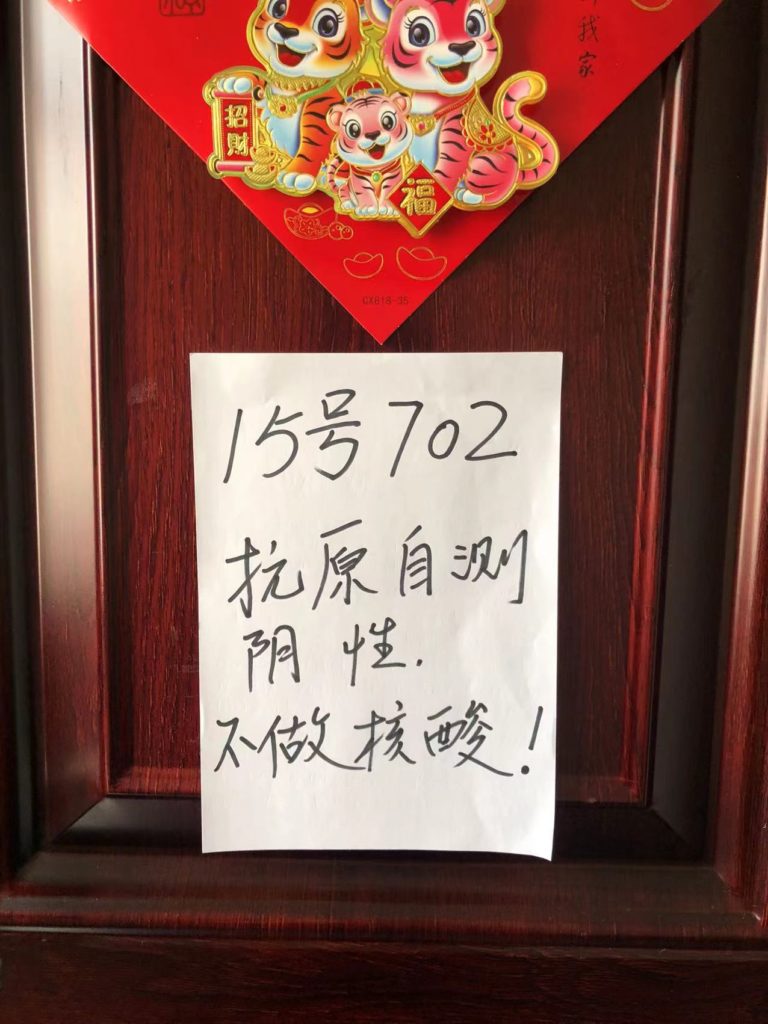 我家
招財
福
GX818-35
15号702
抗原自测
阴性.
不做核酸!